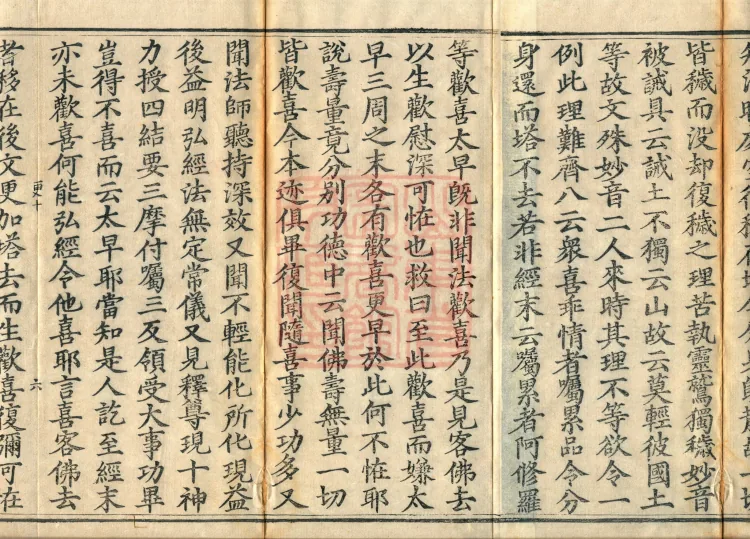 皆穢而没却復穢之理苦執靈鷲獨穢妙音
被誡具云誡土不獨云山故云莫輕彼國土
等故文殊妙音二人來時其理不等欲令一
例此理難齊八云衆喜乖情者囑累品令分
身還而塔不去若非經末云囑累者阿修羅
等歡喜太早旣非聞法歡喜乃是見客佛去
以生歡慰深可恠也救曰至此歡喜而嫌太
早三周之末各有歡喜更早於此何不恠耶
說壽量竟分别功德中云聞佛壽無量一切
皆歡喜今本迹俱畢復聞隨喜事少功多又
聞法師聽持深效又聞不輕能化所化現益
後益明弘經法無定常儀又見釋尊現十神
力授四結要三摩付囑三反領受大事功畢
豈得不喜而云太早耶當知是人訖至經末
亦未歡喜何能弘經令他喜耶言喜客佛去
更十
六
者移在後文更加塔去而生歡喜復彌可在